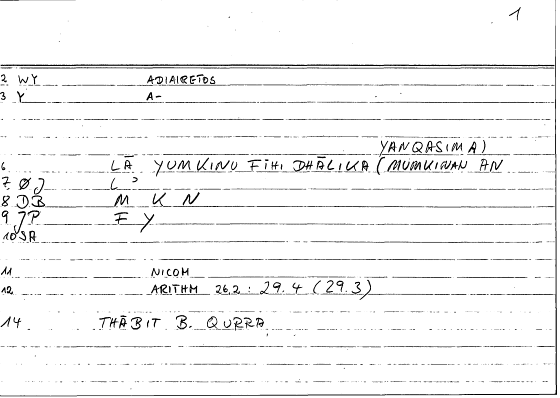 1
2 WY ADIAIRETOS
3 Y A-
YANQASIMA)
6 LĀ YUMKINU FĪHI DHĀLIKA (MUMKINAN AN
7 Ø J L ʾ
8 DB M K N
9 JP F Y
10 SA
11 NICOM
12 ARITHM 26,2 : 29.4 (29.3)
14 THĀBIT B. QURRA